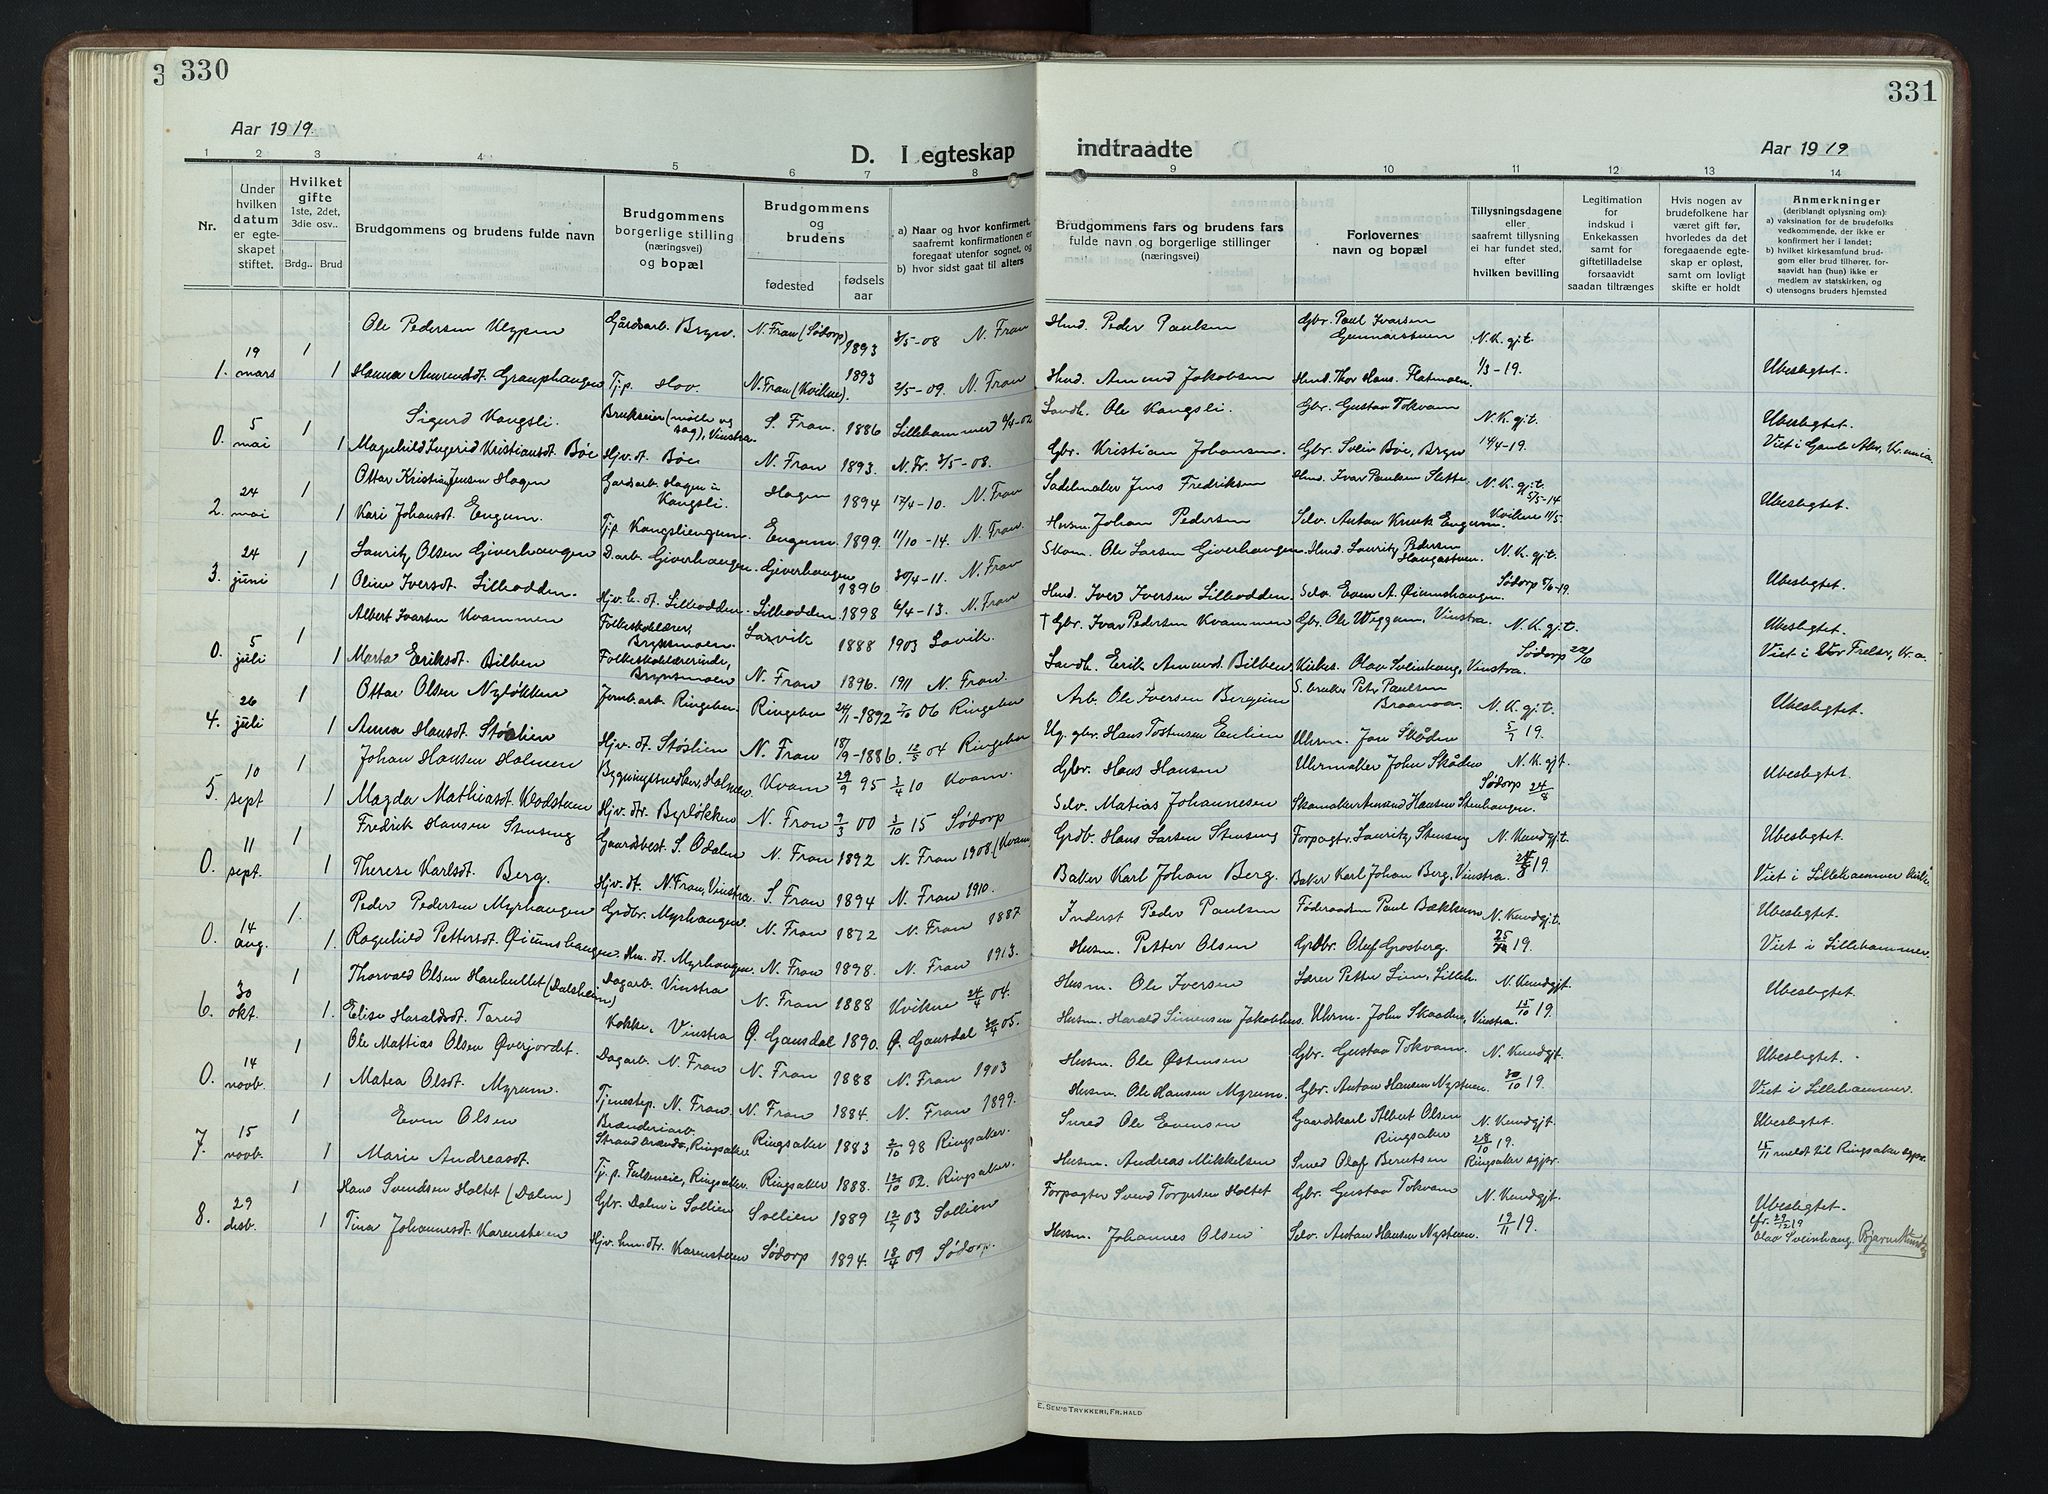 330
Aar 1919.
D. I egteskap
1 2 3 4 5 6 7 8
Nr.
Under hvilken datum er egteskapet stiftet.
Hvilket gifte 1ste, 2det, 3die osv..
Brdg.. Brud
Brudgommens og brudens fulde navn
Brudgommens borgerlige stilling (næringsvei) og bopæl
Brudgommens og brudens
fødested
fødsels aar
a) Naar og hvor konfirmert, saafremt konfirmationen er foregaat utenfor sognet, og
b) hvor sidst gaat til alters
Ole Pedersen Klypen Gårdsarb. Bryn. N. Fron (Sødorp) 1893 3/5-08 N. Fron
1. 19 mars 1 1 Hanna Amundsdt. Grauphaugen Tj.p. Hov N. Fron (Kvikne). 1893 2/5-09. N. Fron
Sigurd Kongsli. Brukseier (mølle og sag), Vinstra. S. Fron. 1886 Lillehammer 6/4-02
0. 5 mai 1 1 Magnhild Ingerid Kristiansdt. Bøe Hjv. dt. Bøe N. Fron 1893. N. Fr. 3/5-08.
Ottar Kristian Jensen Hagen Gardsarb. Hagen i Kongsli. Hagen 1894 17/4-10. N. Fron
2. 24 mai 1 1 Kari Johansdt. Engum. Tj.p. Kongsliengum. Engum 1899. 11/10-14. N. Fron.
Lauritz Olsen Giverhaugen D.arb. Giverhaugen. Giverhaugen 1896 30/4-11. N. Fron
3. 24 juni 1 1 Oline Iversdt. Lilleodden. Hjv. h. dt. Lilleodden. Lilleodden 1898 6/4-13. N. Fron
Albert Ivarsen Kvammen Folkeskolelærer, Brynsmoen. Lavik 1888 1903 Lavik.
0. 5 juli 1 1 Marta Eriksdt. Bilben Folkeskolelærerinde, Brynsmoen N. Fron 1896. 1911 N. Fron.
Ottar Olsen Nyløkken Jernb.arb. Ringebu. Ringebu 24/1-1892 7/10 06 Ringebu
4. 26 juli 1 1 Anna Hansdt. Stølien Hjv. dt. Stølien N. Fron 18/9-1886. 12/5 04 Ringebu
Johan Hansen Holmen Bygningssnedker, Holmen. Kvam 29/9 95 3/4 10 Kvam.
5. 10 sept 1 1 Magda Mathiasdt. Kvodstuen Hjv. dtr. Byrløkken N. Fron 9/3 00 3/10 15 Sødorp
Fredrik Hansen Stensing Gaardbest. S. Odalen N. Fron 1892 N. Fron 1908 (Kvam
0. 11 sept. 1 1 Therese Karlsdt. Berg. Hjv. dt. N. Fron, Vinstra S. Fron 1894 N. Fron 1910.
Peder Pedersen Myrhaugen Grdbr. Myrhaugen. N. Fron 1872 N. Fron 1887
0. 14 aug. 1. 1. Ragnhild Pettersdt. Øiumshaugen. Hm. dt. Myrhaugen. N. Fron 1898. N. Fron 1913.
Thorvald Olsen Harehullet (Dalsheim) Dagarb. Vinstra N. Fron 1888 Kvikne 24/4 04.
6. 30 okt. 1 1. Elise Haraldsdt. Tarud Kokke, Vinstra Ø. Gausdal 1890. Ø. Gausdal 30/4 05.
Ole Mattias Olsen Øverjordet. Dagarb. N. Fron N. Fron 1888 N. Fron 1903
0. 14 novb. 1 1 Matea Olsdt. Myrum. Tjenestep. N. Fron. N. Fron 1884. N. Fron 1899.
Even Olsen Brænderiarb. Strandbrænderi, Ringsaker Ringsaker 1883 2/10 98 Ringsaker.
7. 15 novb. 1 1 Marie Andreasdt. Tj.p. Ringsaker. Ringsaker 1888. 12/10 02. Ringsaker.
Hans Svendsen Holtet (Dalen) Gbr. Dalen i Sollien Sollien 1889 12/7 03 Sollien
8. 29 desb. 1 1 Tina Johannesdt. Karenstuen Hjv. hm. dtr. Karenstuen Sødorp 1894. 18/4 09 Sødorp.
331
indtraadte
Aar 1919
9 10 11 12 13 14
Brudgommens fars og brudens fars fulde navn og borgerlige stillinger (næringsvei)
Forlovernes navn og bopæl
Tillysningsdagene eller, saafremt tillysning ei har fundet sted, efter hvilken bevilling
Legitimation for indskud i Enkekassen samt for giftetilladelse forsaavidt saadan tiltrænges
Hvis nogen av brudefolkene har været gift før, hvorledes da det foregaaende egteskap er opløst, samt om lovligt skifte er holdt
Anmerkninger (deriblandt oplysning om):
a) vaksination for de brudefolks vedkommende, der ikke er konfirmert her i landet;
b) hvilket kirkesamfund brudgom eller brud tilhører, forsaavidt han (hun) ikke er medlem av statskirken, og
c) utensogns bruders hjemsted
Hmd. Peder Paulsen Gbr. Paul Ivarsen Gunnarstuen N.K. gjt.
Hmd. Amund Jakobsen Hmd. Thor Hans. Flatmoen. 1/3-19. Ubeslegtet.
Landh. Ole Kongsli. Gbr. Gustav Tokvam N.K. gjt. Ubeslegtet.
Gbr. Kristian Johansen. Gbr. Svein Bøe, Bryn 14/4-19. Viet i Gamle Aker, Kr.ania.
Sadelmaker Jens Fredriksen Hmd. Ivar Paulsen Slette. N.K. gjt. 5/5-14
Husm. Johan Pedersen Selv. Anton Knuk Engum. Kvikne 11/5. Ubeslegtet.
Skom. Ole Larsen Giverhaugen. Hmd. Lauritz Pedersen Haugastuen. N.K. gjt.
Hmd. Iver Iversen Lilleodden. Selv. Even A. Øiumshaugen. Sødorp 5/6-19. Ubeslegtet.
† Gbr. Ivar Pedersen Kvammen Gbr. Ole Weggum, Vinstra. N.K. gjt. Ubeslegtet.
Landh. Erik Amund. Bilben Kirkes. Olav Sveinhaug, Vinstra. Sødorp 22/6 Viet i Vor Frelser, Kr.a.
Arb. Ole Iversen Bergum S. bruker Peter Paulsen Braanaa. N.K. gjt. Ubeslegtet.
Ug. gbr. Hans Tostensen Enlien Uhrm. Jon Skåden 5/7 19.
Gbr. Hans Hansen Uhrmaker John Skåden N.K. gjt. Ubeslegtet.
Selv. Matias Johannesen Skomaker Amund Hansen Stenhaugen. Sødorp 24/8
Grdb. Hans Larsen Stensing Forpagter Lauritz Stensing N. Kundgjt. Ubeslegtet.
Baker Karl Johan Berg. Baker Karl Johan Berg, Vinstra. 24/8 19. Viet i Lillehammer kirke
Inderst Peder Paulsen Føderaadsm. Paul Bækkum N. Kundgjt. Ubeslegtet.
Husm. Petter Olsen Grdbr. Oluf Grosberg. 25/7 19. Viet i Lillehammer.
Husm. Ole Iversen Lærer Petter Lien, Lilleh. N. Kundgjt. Ubeslegtet.
Husm. Harald Simensen Jakobhus. Uhrm. John Skaaden, Vinstra. 15/10 19.
Husm. Ole Østensen Gbr. Gustav Tokvam. N. Kundgjt. Ubeslegtet.
Husm. Ole Hansen Myrum. Gbr. Anton Hansen Nystuen. 30/10 19. Viet i Lillehammer.
Smed Ole Evensen Gaardskarl Albert Olsen Ringsaker N. Kundgjt. Ubeslegtet.
Husm. Andreas Mikkelsen Smed Olaf Berntsen 28/10 19. Ringsaker sgpr. 15/11 meldt til Ringsaker sgpr.
Forpagter Svend Torgersen Holtet Gbr. Gustav Tokvam N. Kundgjt. Ubeslegtet.
Husm. Johannes Olsen Selv. Anton Hansen Nystuen. 19/11 19. cfr. 29/12 19 Olav Sveinhaug.
E. Sem's Trykkeri, Fr.hald